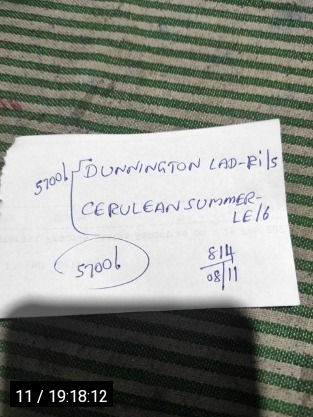 5700/ DUNNINGTON LAD-Ri/5
CERULEAN SUMMER-
LE/6
5700/
814
08/11
11 / 19:18:12